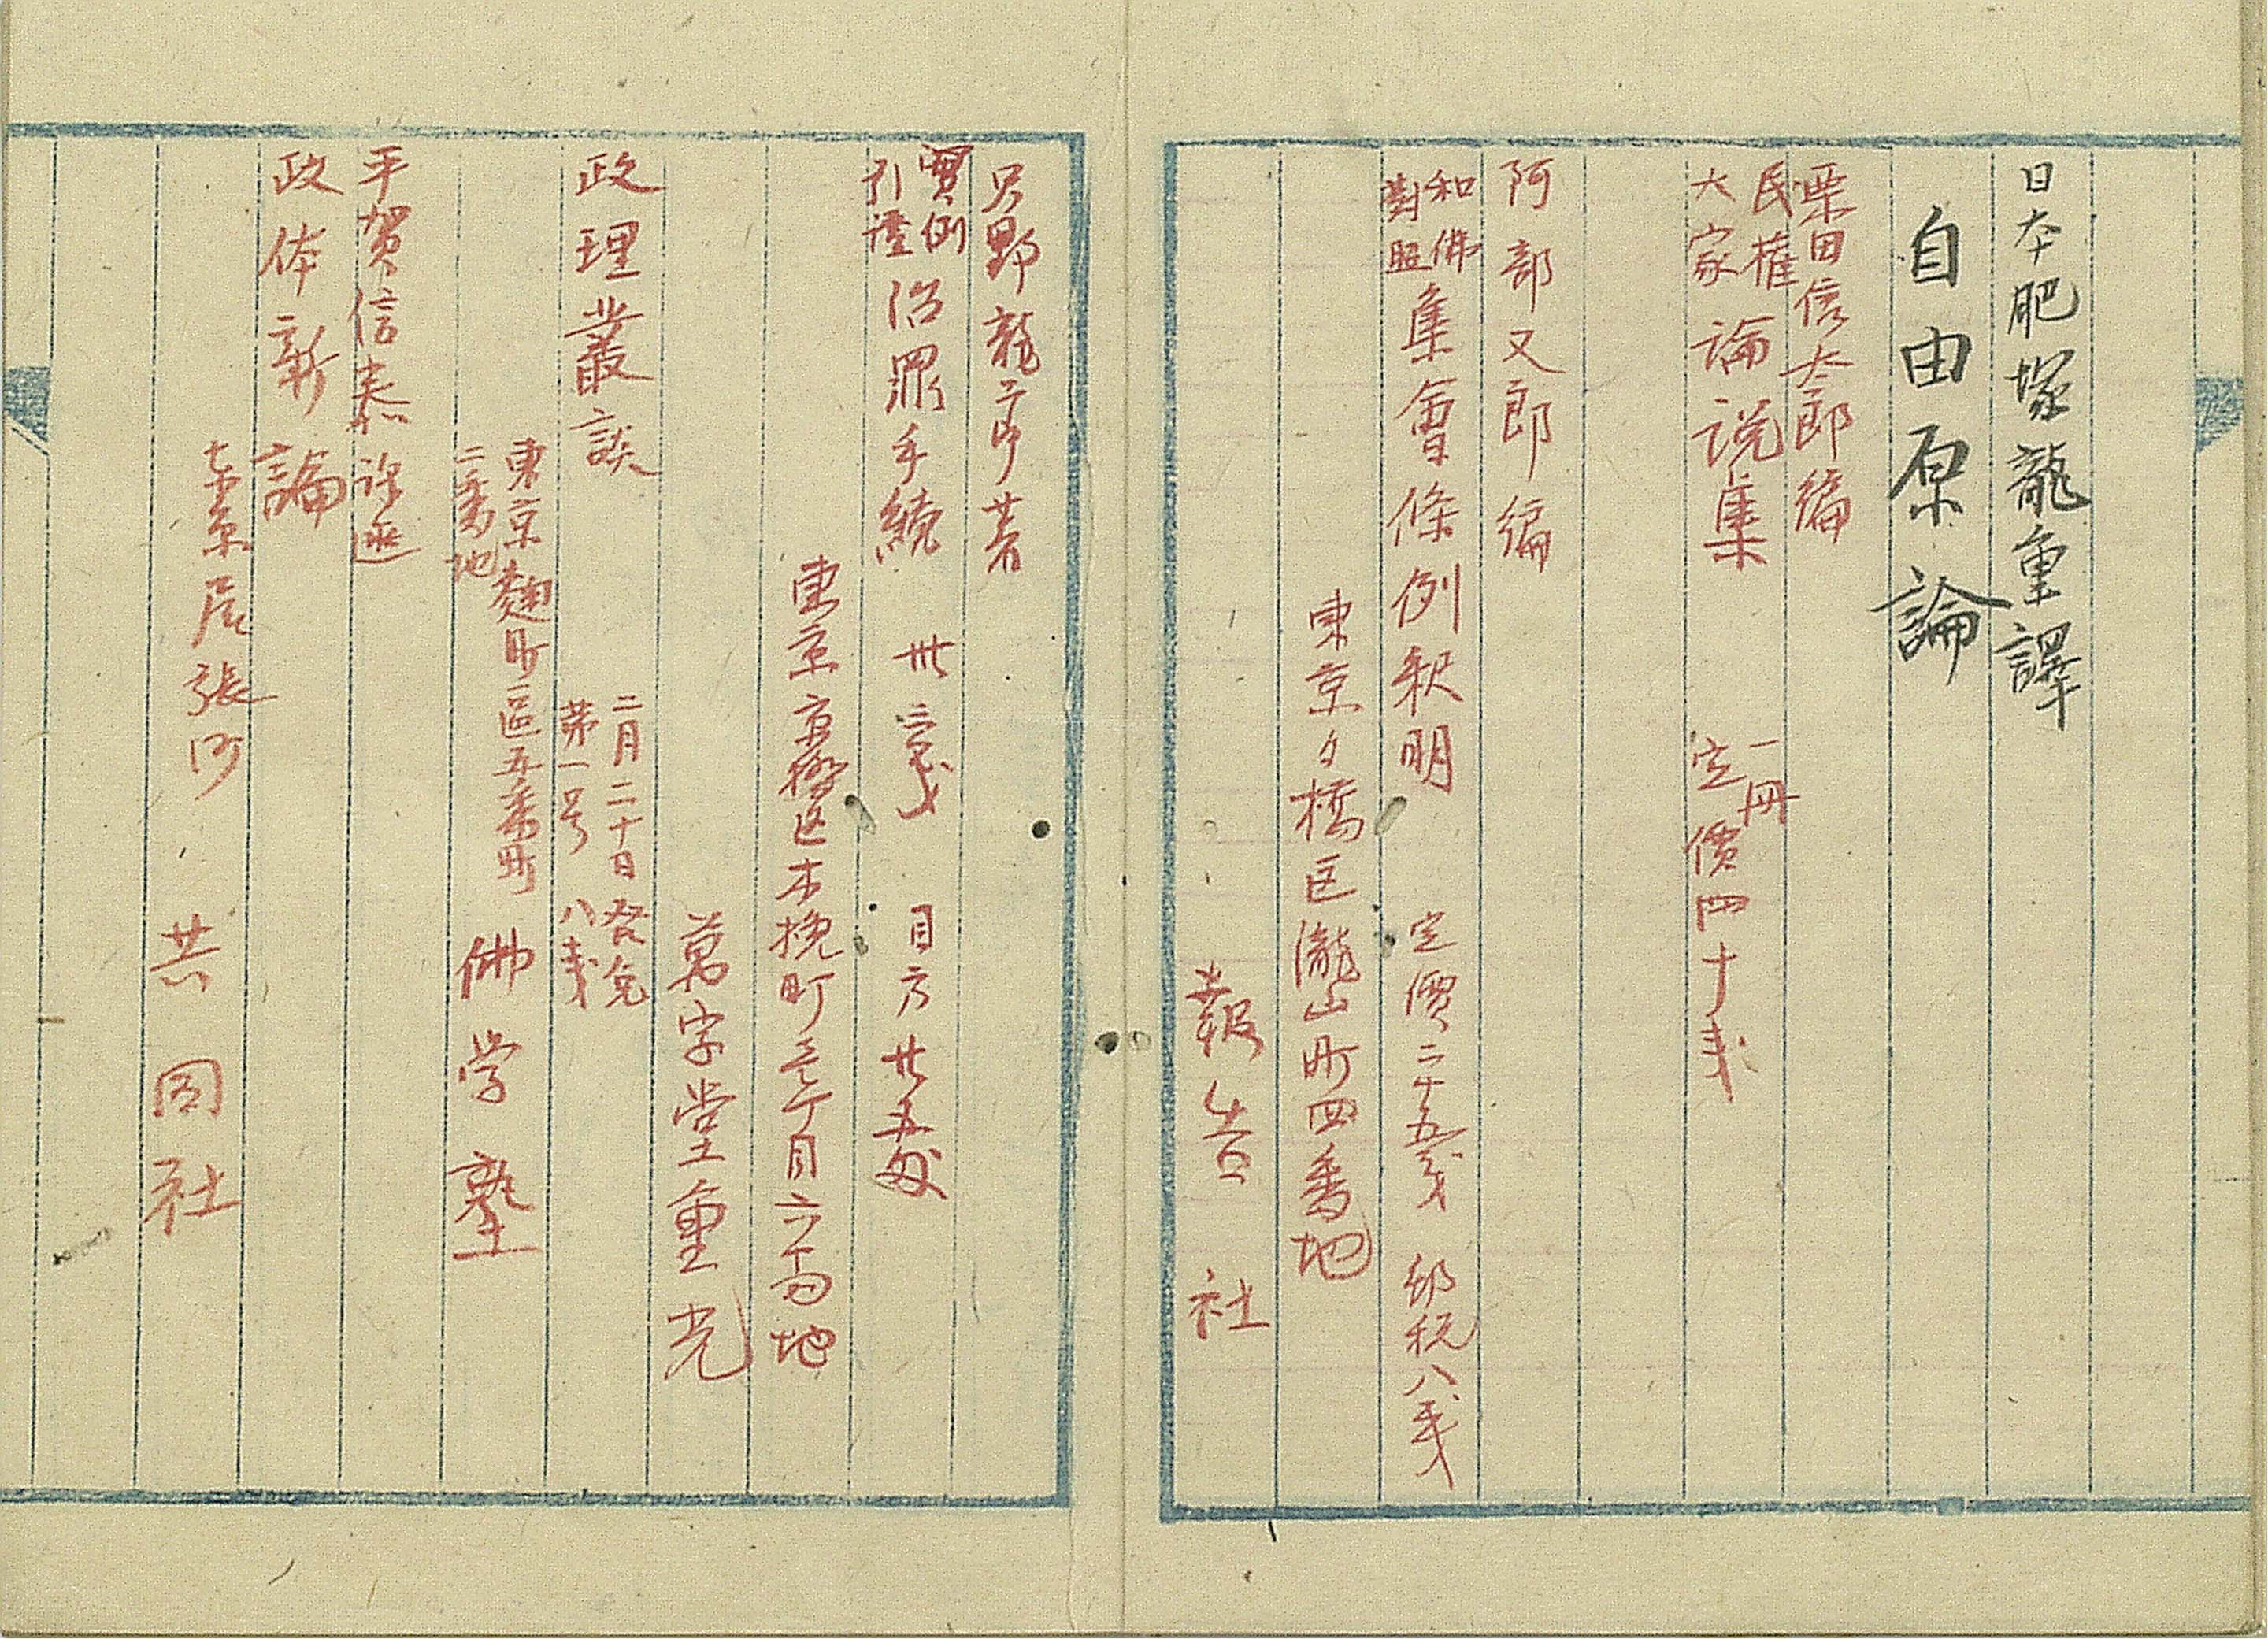 日本肥塚龍重譯
自由原論
栗田信太郎編
民権
大家
論説集
一冊
定價四十戋
阿部又郎編
和佛
對照
集會條例釈明
定價二十五戋 郵税八戋
東京々橋区瀧山町四番地
報告社
只野龍二郎著
實例
引證
治罪手続
卅二戋 目方廿五匁
東京京橋区木挽町
丁目六番地
萬字堂重光
政理叢談
二月二十日発兌
第一号 八戋
東京麹町區五番町
二番地
佛学塾
平賀信泰
政体新論
東京尾張町
共同社